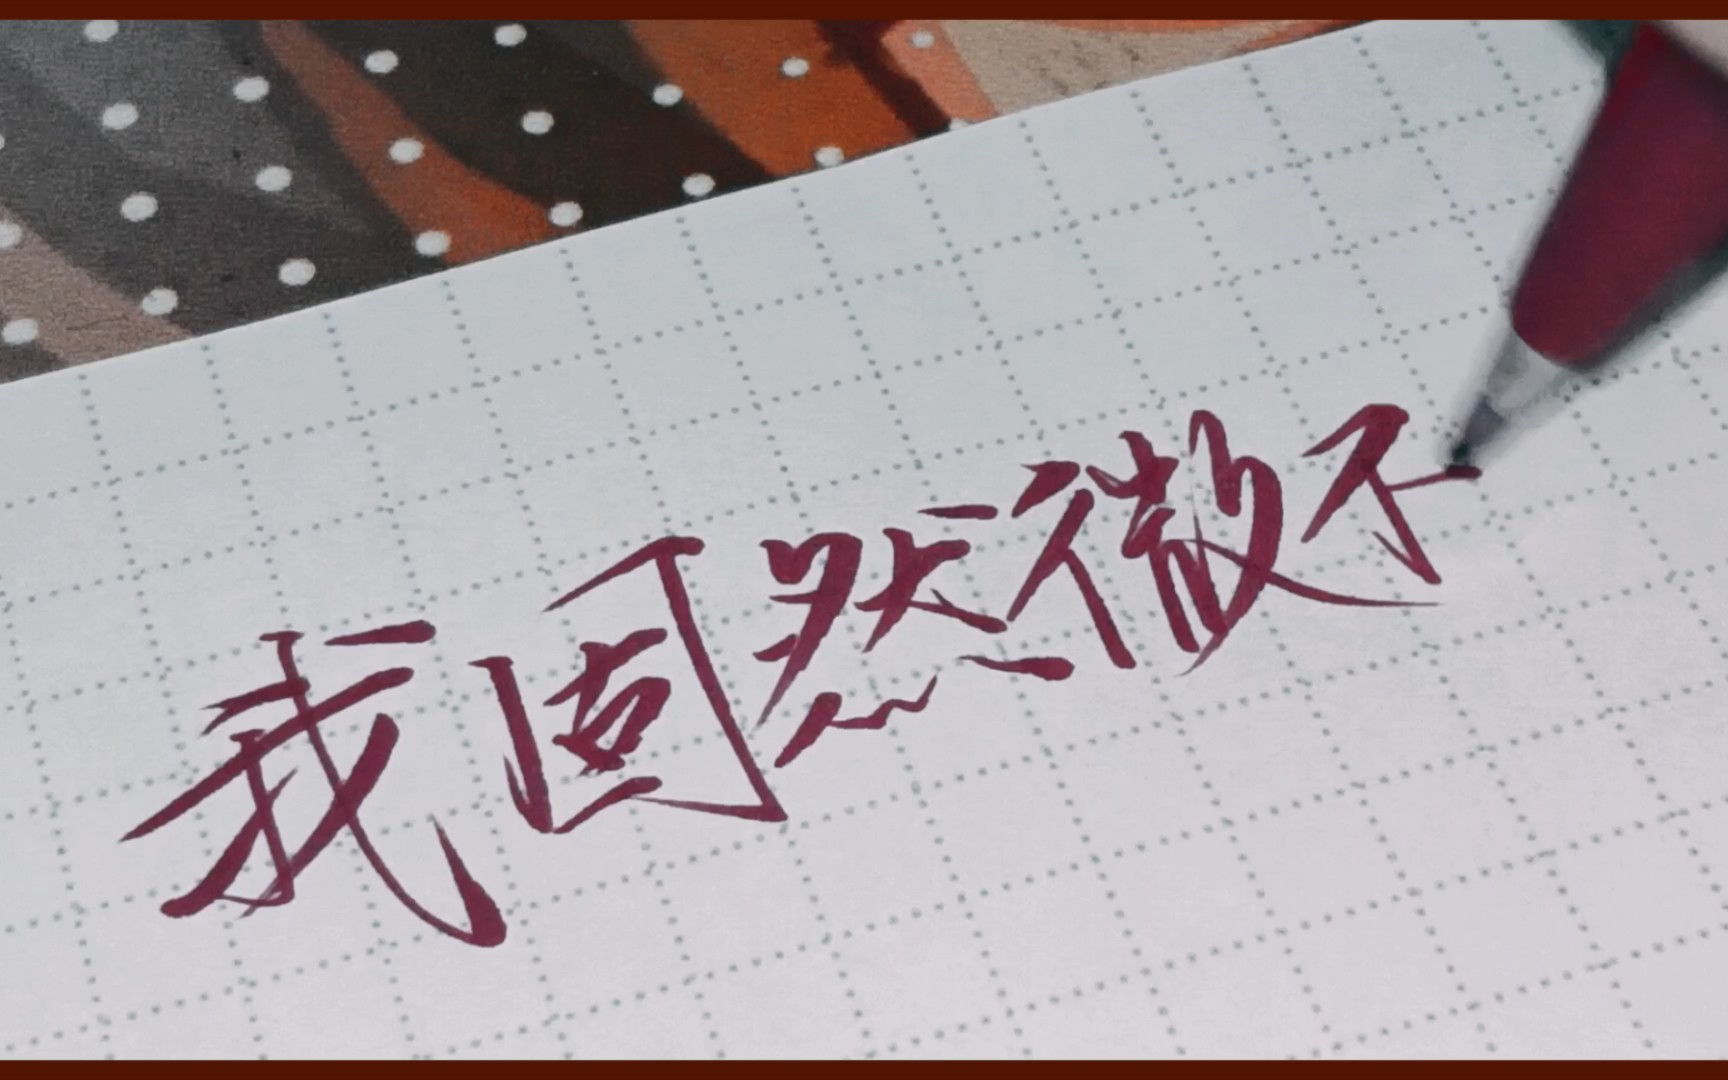 我固然微不